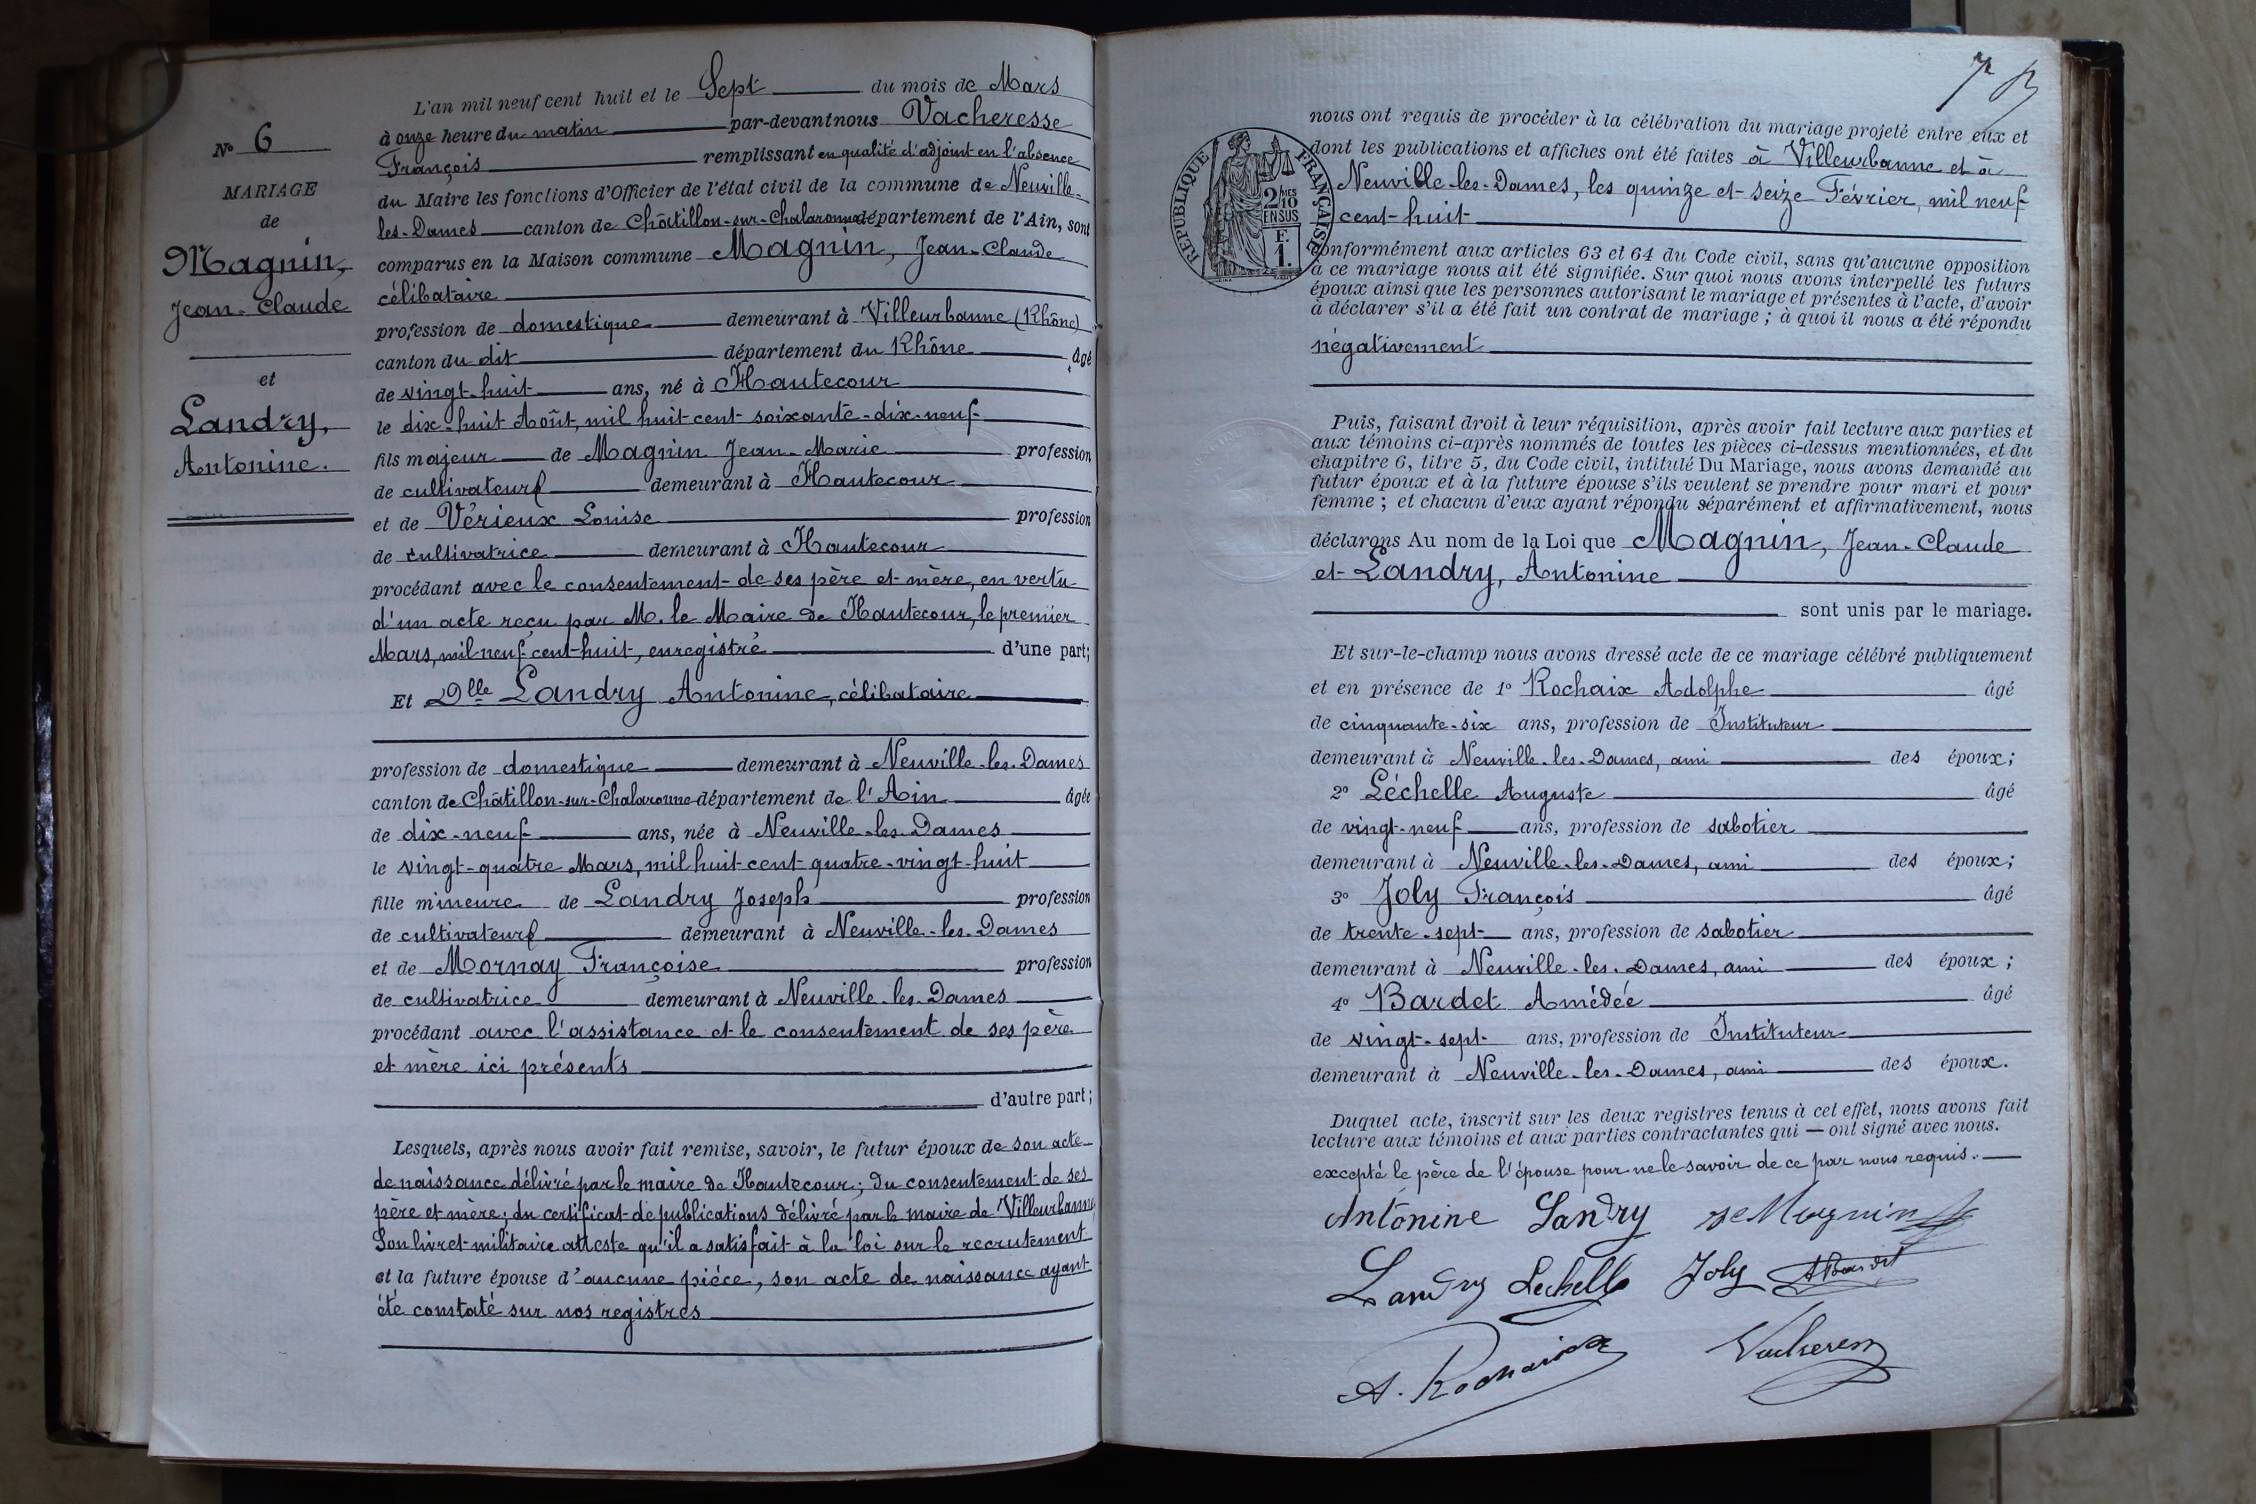 N° 6
MARIAGE
de
Magnin,
Jean-Claude
et
Landry,
Antonine.
L'an mil neuf cent huit et le Sept du mois de Mars
à onze heure du matin par-devant nous Vacheresse
François remplissant en qualité d'adjoint en l'absence
du Maire les fonctions d'Officier de l'état civil de la commune de Neuville-
les-Dames canton de Châtillon-sur-Chalaronne département de l'Ain, sont
comparus en la Maison commune Magnin, Jean-Claude
célibataire
profession de domestique demeurant à Villeurbanne (Rhône)
canton du dit département du Rhône âgé
de vingt-huit ans, né à Hautecour
le dix-huit Août, mil huit cent soixante-dix-neuf
fils majeur de Magnin Jean-Marie profession
de cultivateur demeurant à Hautecour
et de Vérieux Louise profession
de cultivatrice demeurant à Hautecour
procédant avec le consentement de ses père et mère, en vertu
d'un acte reçu par M. le Maire de Hautecour, le premier
Mars, mil neuf cent-huit, enregistré d'une part;
Et Dlle Landry Antonine, célibataire
profession de domestique demeurant à Neuville-les-Dames
canton de Châtillon-sur-Chalaronne département de l'Ain âgée
de dix-neuf ans, née à Neuville-les-Dames
le vingt-quatre Mars, mil huit-cent quatre-vingt-huit
fille mineure de Landry Joseph profession
de cultivateur demeurant à Neuville-les-Dames
et de Mornay Françoise profession
de cultivatrice demeurant à Neuville-les-Dames
procédant avec l'assistance et le consentement de ses père
et mère ici présents
d'autre part;
Lesquels, après nous avoir fait remise, savoir, le futur époux de son acte
de naissance délivré par le maire de Hautecour; du consentement de ses
père et mère; du certificat de publications délivré par le maire de Villeurbanne
Son livret militaire atteste qu'il a satisfait à la loi sur le recrutement
et la future épouse d'aucune pièce, son acte de naissance ayant
été constaté sur nos registres
RÉPUBLIQUE FRANÇAISE
2 MES
10
EN SUS
F.
1.
nous ont requis de procéder à la célébration du mariage projeté entre eux et
dont les publications et affiches ont été faites à Villeurbanne et à
Neuville-les-Dames, les quinze et seize Février, mil neuf
cent-huit
conformément aux articles 63 et 64 du Code civil, sans qu'aucune opposition
à ce mariage nous ait été signifiée. Sur quoi nous avons interpellé les futurs
époux ainsi que les personnes autorisant le mariage et présentes à l'acte, d'avoir
à déclarer s'il a été fait un contrat de mariage; à quoi il nous a été répondu
négativement
Puis, faisant droit à leur réquisition, après avoir fait lecture aux parties et
aux témoins ci-après nommés de toutes les pièces ci-dessus mentionnées, et du
chapitre 6, titre 5, du Code civil, intitulé Du Mariage, nous avons demandé au
futur époux et à la future épouse s'ils veulent se prendre pour mari et pour
femme; et chacun d'eux ayant répondu séparément et affirmativement, nous
déclarons Au nom de la Loi que Magnin, Jean-Claude
et Landry, Antonine
sont unis par le mariage.
Et sur-le-champ nous avons dressé acte de ce mariage célébré publiquement
et en présence de 1° Rochaix Adolphe âgé
de cinquante-six ans, profession de Instituteur
demeurant à Neuville-les-Dames, ami des époux;
2° Léchelle Auguste âgé
de vingt-neuf ans, profession de sabotier
demeurant à Neuville-les-Dames, ami des époux;
3° Joly François âgé
de trente-sept ans, profession de sabotier
demeurant à Neuville-les-Dames, ami des époux;
4° Bardet Amédée âgé
de vingt-sept ans, profession de Instituteur
demeurant à Neuville-les-Dames, ami des époux.
Duquel acte, inscrit sur les deux registres tenus à cet effet, nous avons fait
lecture aux témoins et aux parties contractantes qui — ont signé avec nous.
excepté le père de l'épouse pour ne le savoir de ce par nous requis.
Antonine Landry Magnin
Landry Lechelle Joly ABardet
A. Rochaix Vacheresse